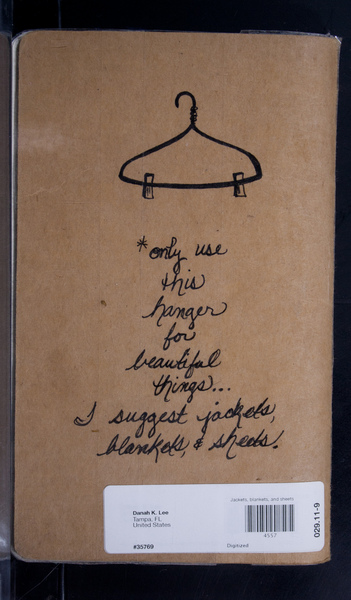 *only use
this
hanger
for
beautiful
things...
I suggest jackets,
blankets, & sheets!
Jackets, blankets, and sheets
Danah K. Lee
Tampa, FL
United States
4557
029.11-9
#35769
Digitized